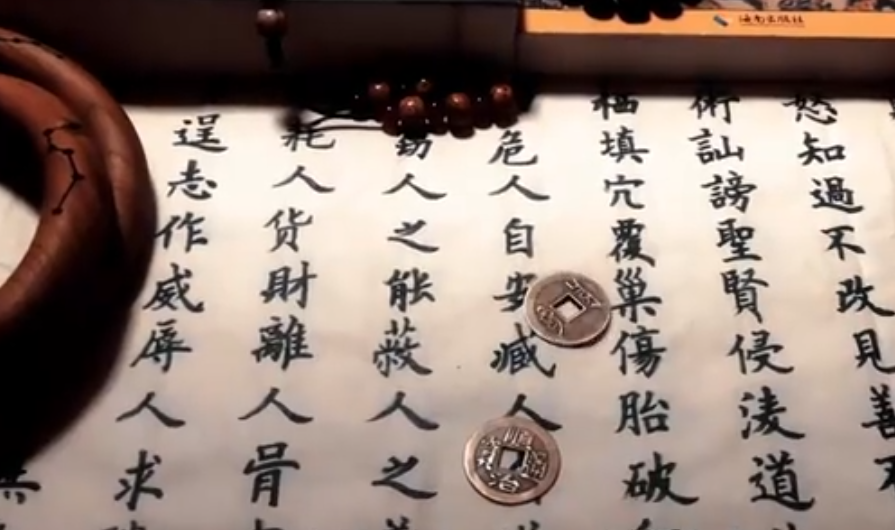 怒知過不改見善不
術訕謗聖賢侵淩道
栖填穴覆巢傷胎破
危人自安減人
人之能蔽人之
耗人貨財離人骨
逞志作威辱人求
無
海南出版社